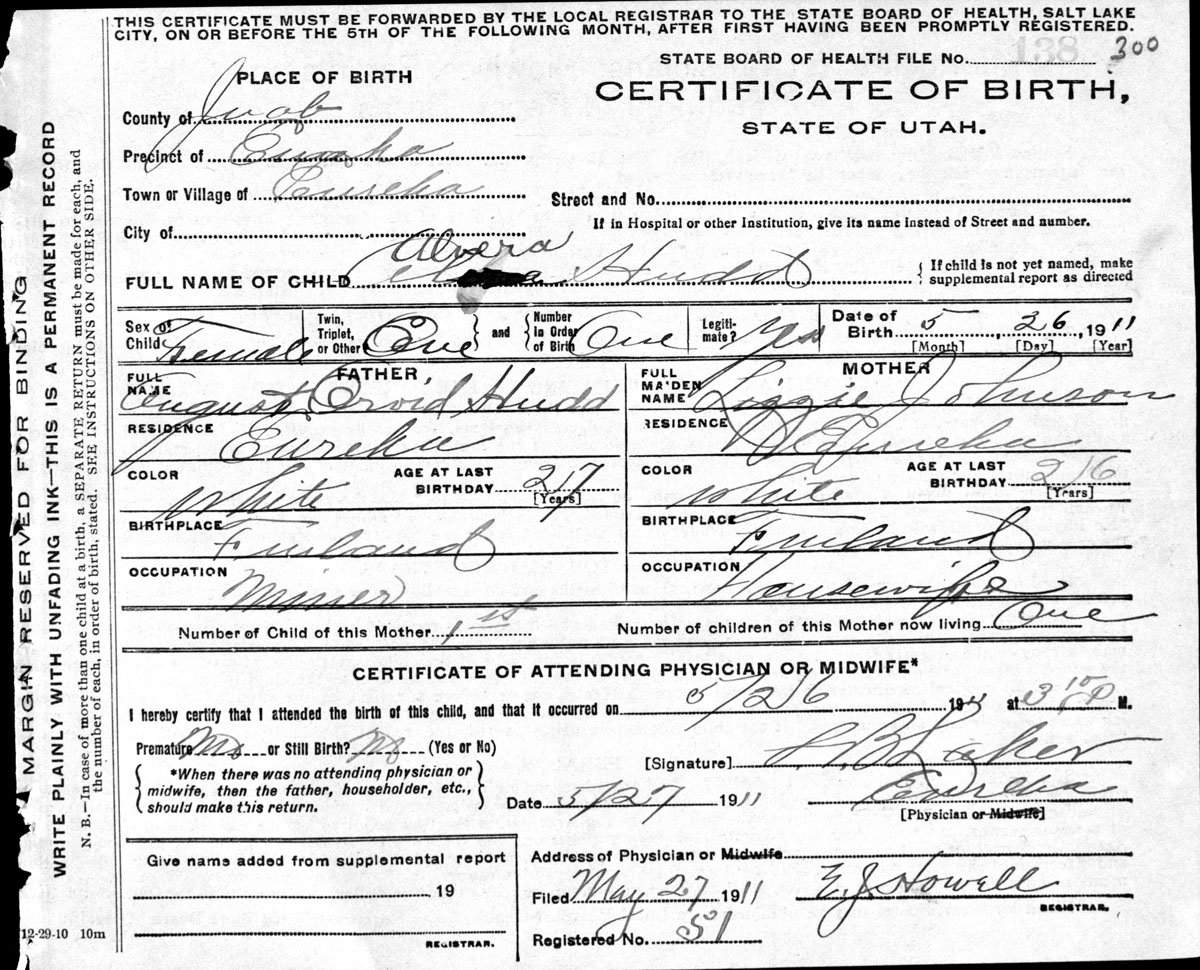 THIS CERTIFICATE MUST BE FORWARDED BY THE LOCAL REGISTRAR TO THE STATE BOARD OF HEALTH, SALT LAKE
CITY, ON OR BEFORE THE 5TH OF THE FOLLOWING MONTH, AFTER FIRST HAVING BEEN PROMPTLY REGISTERED.
STATE BOARD OF HEALTH FILE No. 138 300
PLACE OF BIRTH
CERTIFICATE OF BIRTH,
STATE OF UTAH.
County of Juab
Precinct of Eureka
Town or Village of Eureka
Street and No.
If in Hospital or other Institution, give its name instead of Street and number.
City of
Alvera
FULL NAME OF CHILD Hudd
{ If child is not yet named, make
supplemental report as directed
Sex of Child Female
Twin, Triplet, or Other One } and { Number in Order of Birth One
Legitimate? Yes
Date of Birth 5 26 1911
[Month] [Day] [Year]
FATHER
FULL NAME August Orvid Hudd
RESIDENCE Eureka
COLOR White
AGE AT LAST BIRTHDAY 27
[Years]
BIRTHPLACE Finland
OCCUPATION Miner
MOTHER
FULL MAIDEN NAME Lizzie Johnson
RESIDENCE Eureka
COLOR White
AGE AT LAST BIRTHDAY 26
[Years]
BIRTHPLACE Finland
OCCUPATION Housewife
Number of Child of this Mother 1st
Number of children of this Mother now living One
CERTIFICATE OF ATTENDING PHYSICIAN OR MIDWIFE*
I hereby certify that I attended the birth of this child, and that it occurred on 5/26 1911 at 3 10 P M.
Premature No or Still Birth? No (Yes or No)
[Signature]
{ *When there was no attending physician or
midwife, then the father, householder, etc.,
should make this return. }
Date 5/27 1911
Eureka
[Physician or Midwife]
Give name added from supplemental report
19
REGISTRAR.
Address of Physician or Midwife
Filed May 27 1911 E. J. Howell
REGISTRAR.
Registered No. 51
12-29-10 10m
MARGIN RESERVED FOR BINDING
WRITE PLAINLY WITH UNFADING INK—THIS IS A PERMANENT RECORD
N. B.—In case of more than one child at a birth, a SEPARATE RETURN must be made for each, and
the number of each, in order of birth, stated. SEE INSTRUCTIONS ON OTHER SIDE.